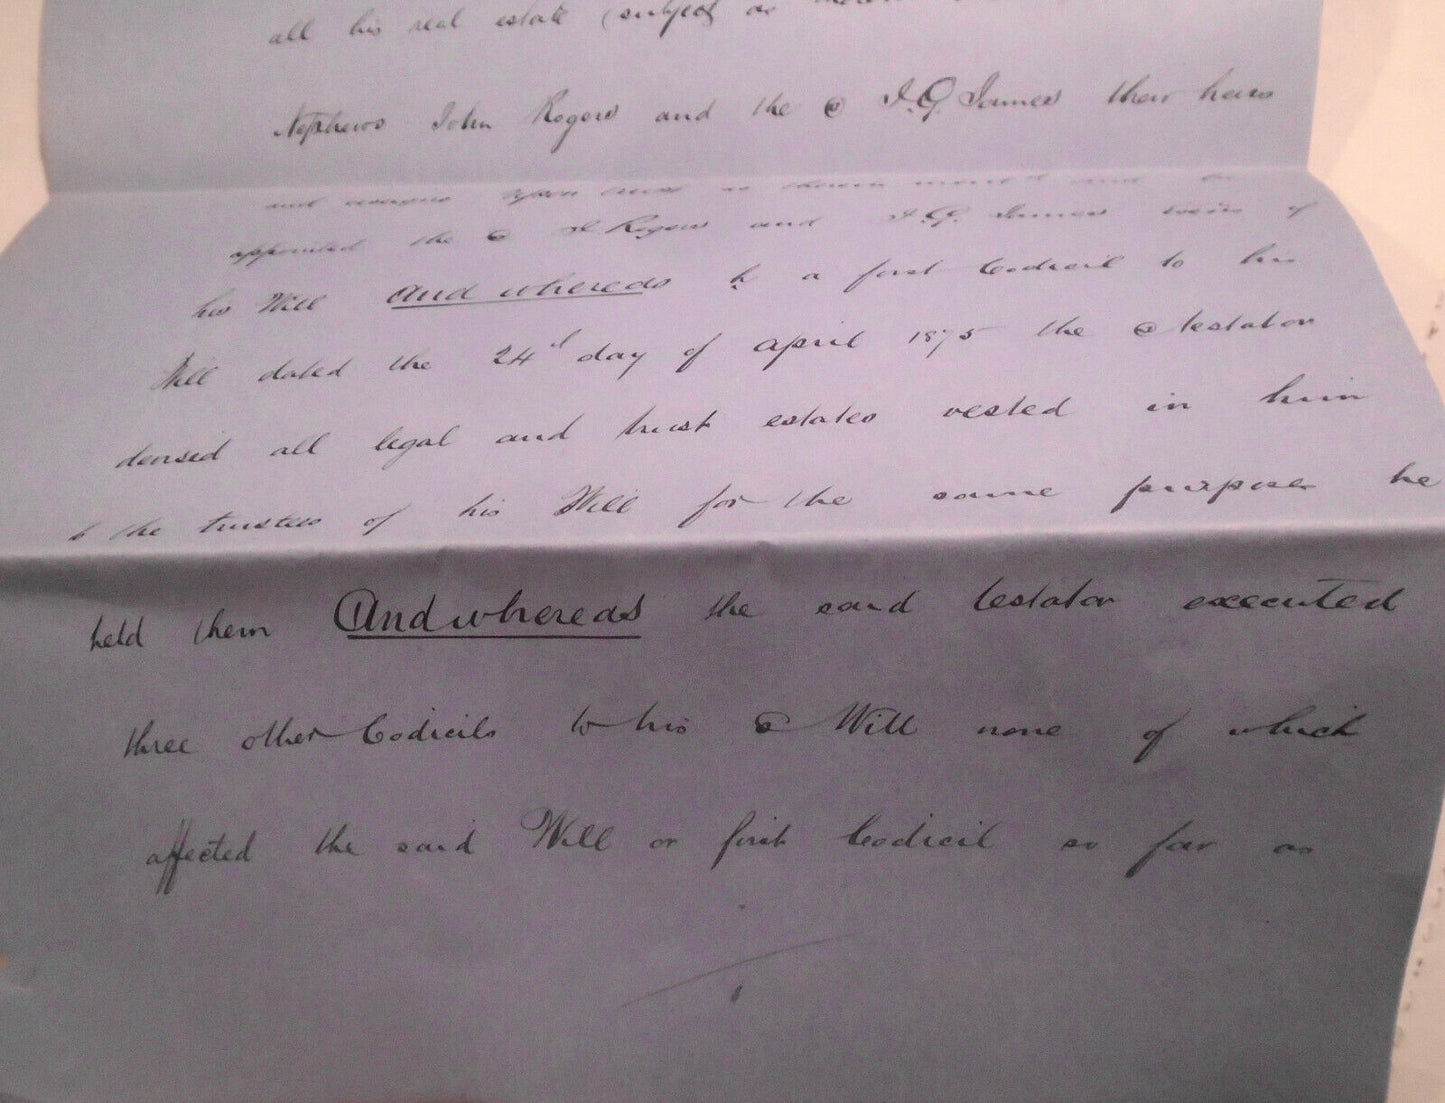 all his real estate (subject as
Nephews John Rogers and the @ J. G. James their heirs
and assigns upon trust as therein ment^d and he
appointed the @ J. Rogers and J. G. James exors of
his Will And whereas by a first Codicil to his
Will dated the 24th day of april 1875 the @ testator
devised all legal and trust estates vested in him
to the trustees of his Will for the same purposes he
held them And whereas the said testator executed
three other Codicils to his @ Will none of which
affected the said Will or first Codicil so far as